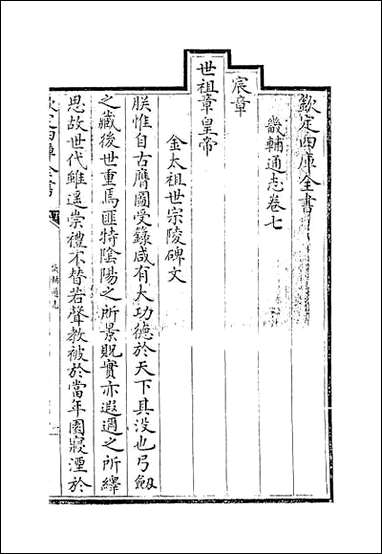 欽定四庫全書
畿輔通志卷七
宸章
世祖章皇帝
金太祖世宗陵碑文
朕惟自古膺圖受籙咸有大功德於天下其没也弓劔
之藏後世重焉匪特陰陽之所景貺實亦遐邇之所繹
思故世代雖遥崇禮不替若聲教被於當年園寢湮於
欽定四庫全書
畿輔通志